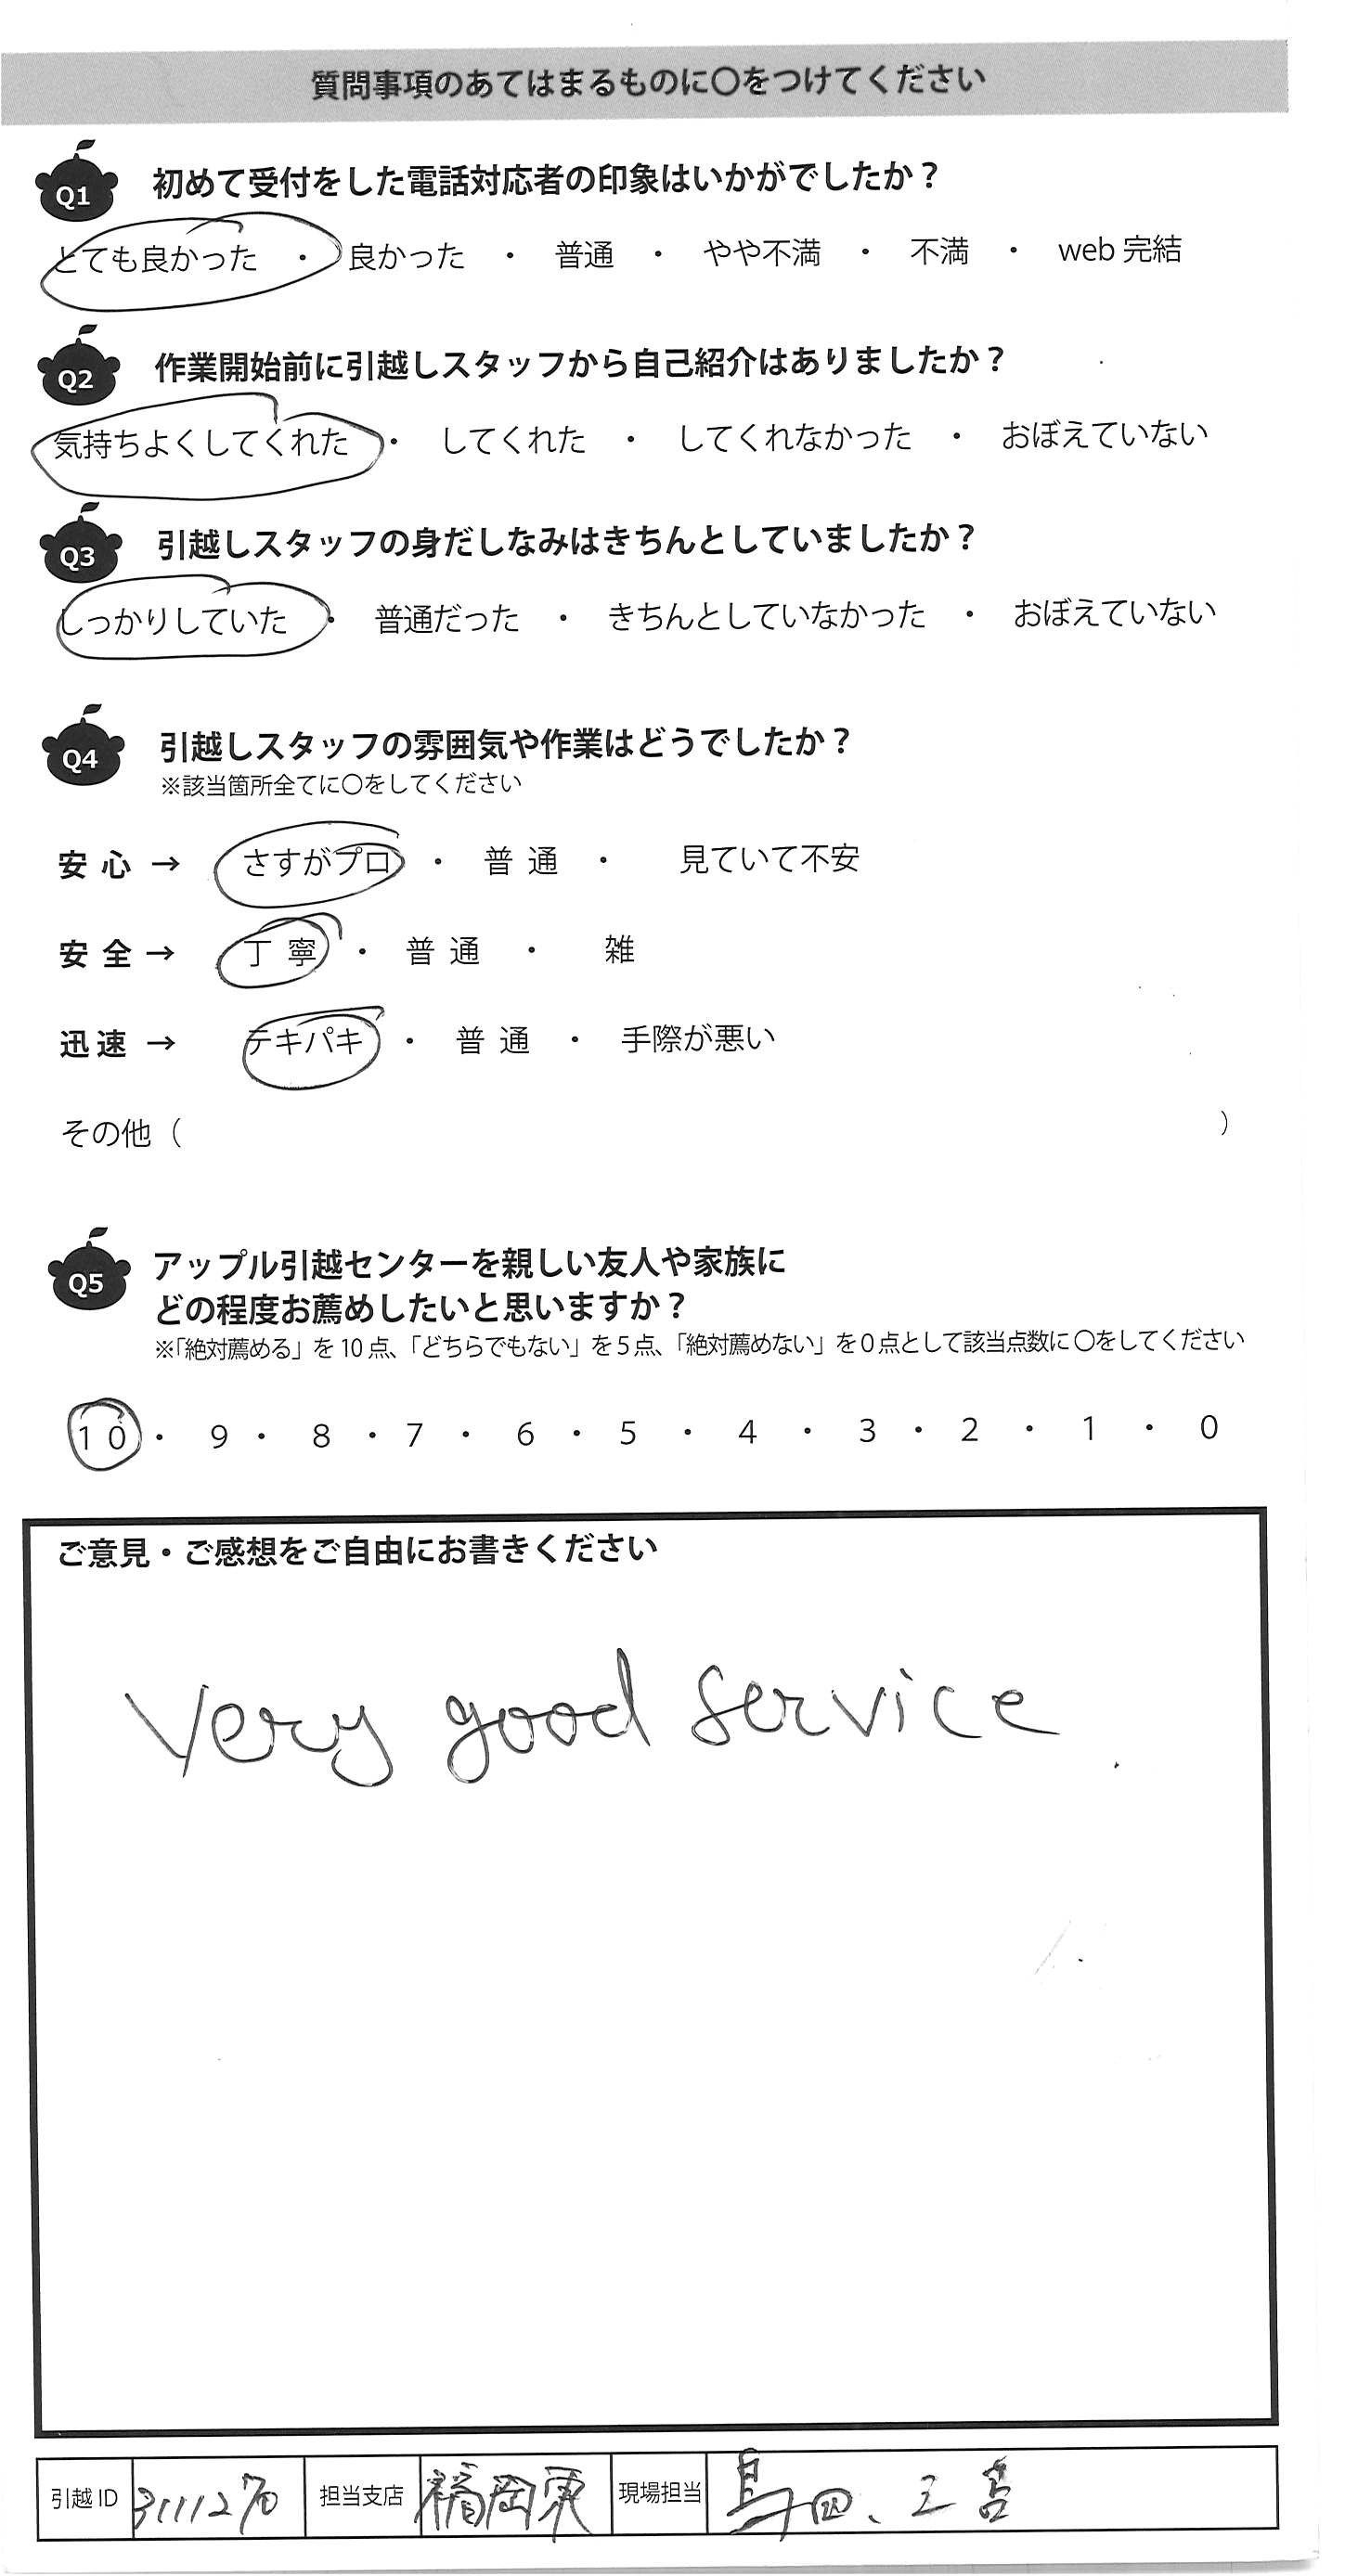 質問事項のあてはまるものに〇をつけてください
Q1 初めて受付をした電話対応者の印象はいかがでしたか？
とても良かった ・ 良かった ・ 普通 ・ やや不満 ・ 不満 ・ web 完結
Q2 作業開始前に引越しスタッフから自己紹介はありましたか？
気持ちよくしてくれた ・ してくれた ・ してくれなかった ・ おぼえていない
Q3 引越しスタッフの身だしなみはきちんとしていましたか？
しっかりしていた ・ 普通だった ・ きちんとしていなかった ・ おぼえていない
Q4 引越しスタッフの雰囲気や作業はどうでしたか？
※該当箇所全てに〇をしてください
安心 → さすがプロ ・ 普通 ・ 見ていて不安
安全 → 丁寧 ・ 普通 ・ 雑
迅速 → テキパキ ・ 普通 ・ 手際が悪い
その他（ ）
Q5 アップル引越センターを親しい友人や家族に
どの程度お薦めしたいと思いますか？
※「絶対薦める」を 10 点、「どちらでもない」を 5 点、「絶対薦めない」を 0 点として該当点数に 〇をしてください
10 ・ 9 ・ 8 ・ 7 ・ 6 ・ 5 ・ 4 ・ 3 ・ 2 ・ 1 ・ 0
ご意見・ご感想をご自由にお書きください
Very good service.
引越 ID 3111270 担当支店 福岡東 現場担当